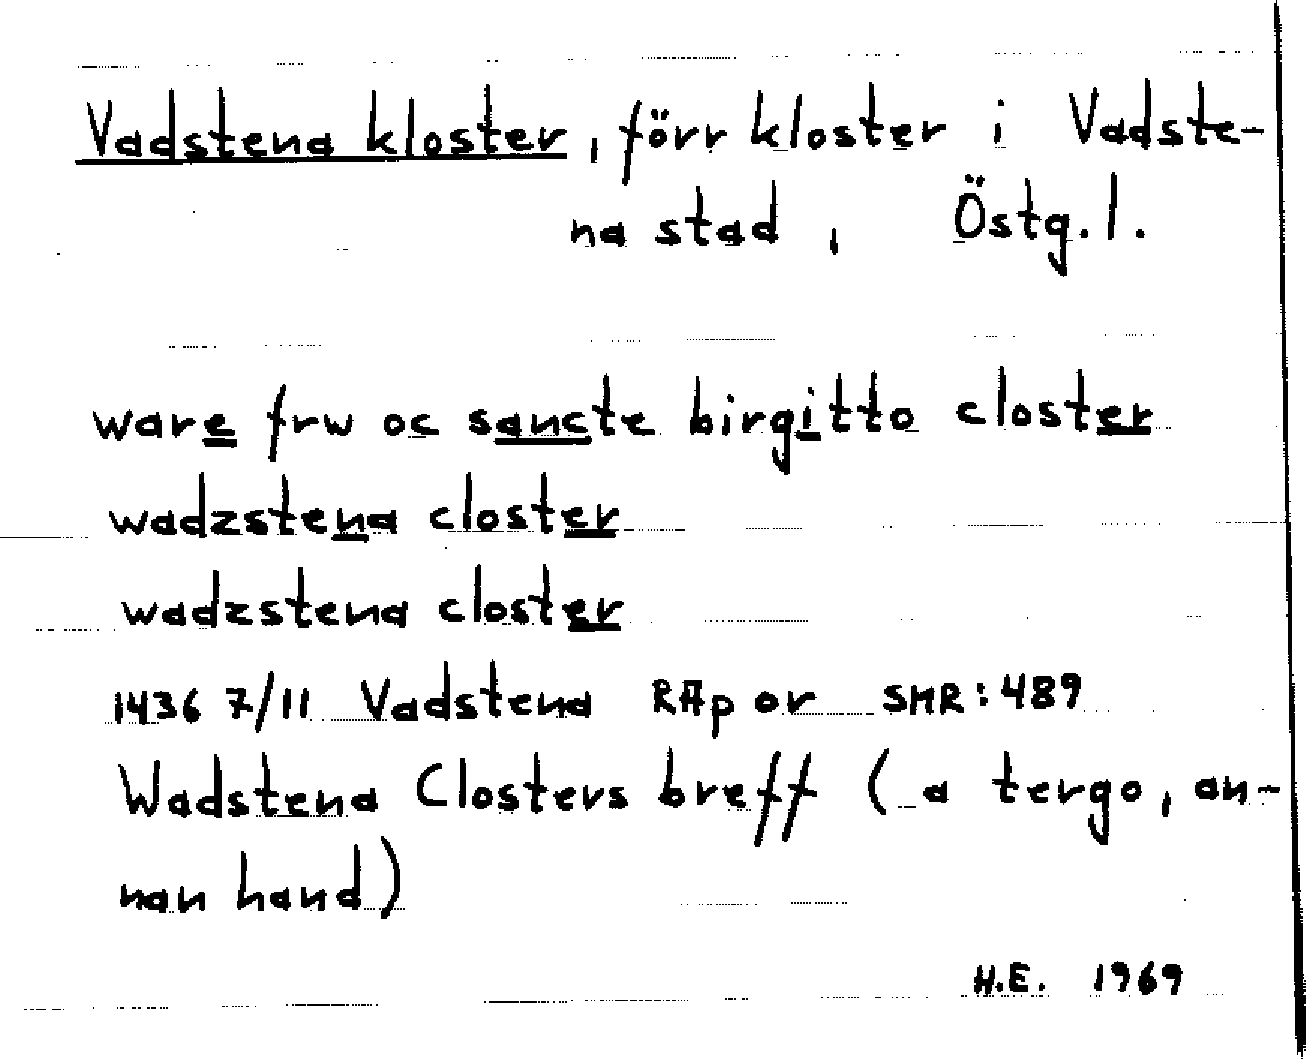 Vadstena kloster, förr kloster i Vadste-
na stad, Östg.l.
ware frw oc sancte birgitto closter
wadzstena closter
wadzstena closter
1436 7/11 Vadstena RAp or SMR:489
Wadstena Closters breff (a tergo, an-
nan hand)
H.E. 1969